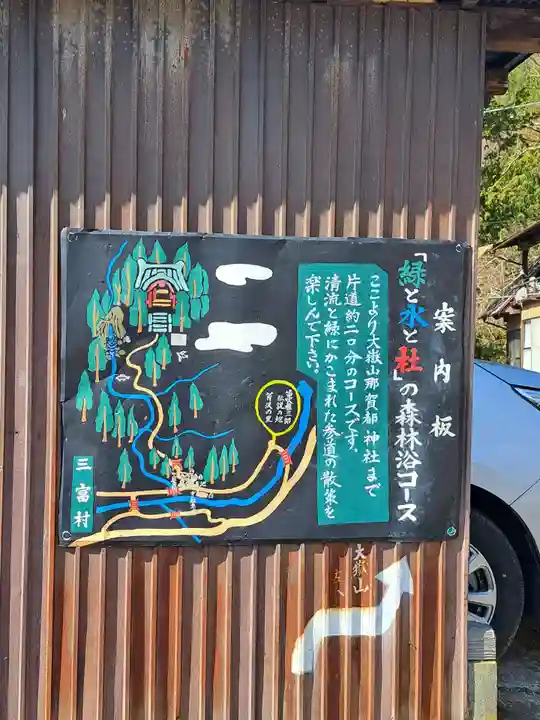 案内板
「緑と水と社」の森林浴コース
ここより大嶽山那賀都神社まで
片道約二〇分のコースです。
清流と緑にかこまれた参道の散策を
楽しんで下さい。
伝説の地
三富村
大嶽山